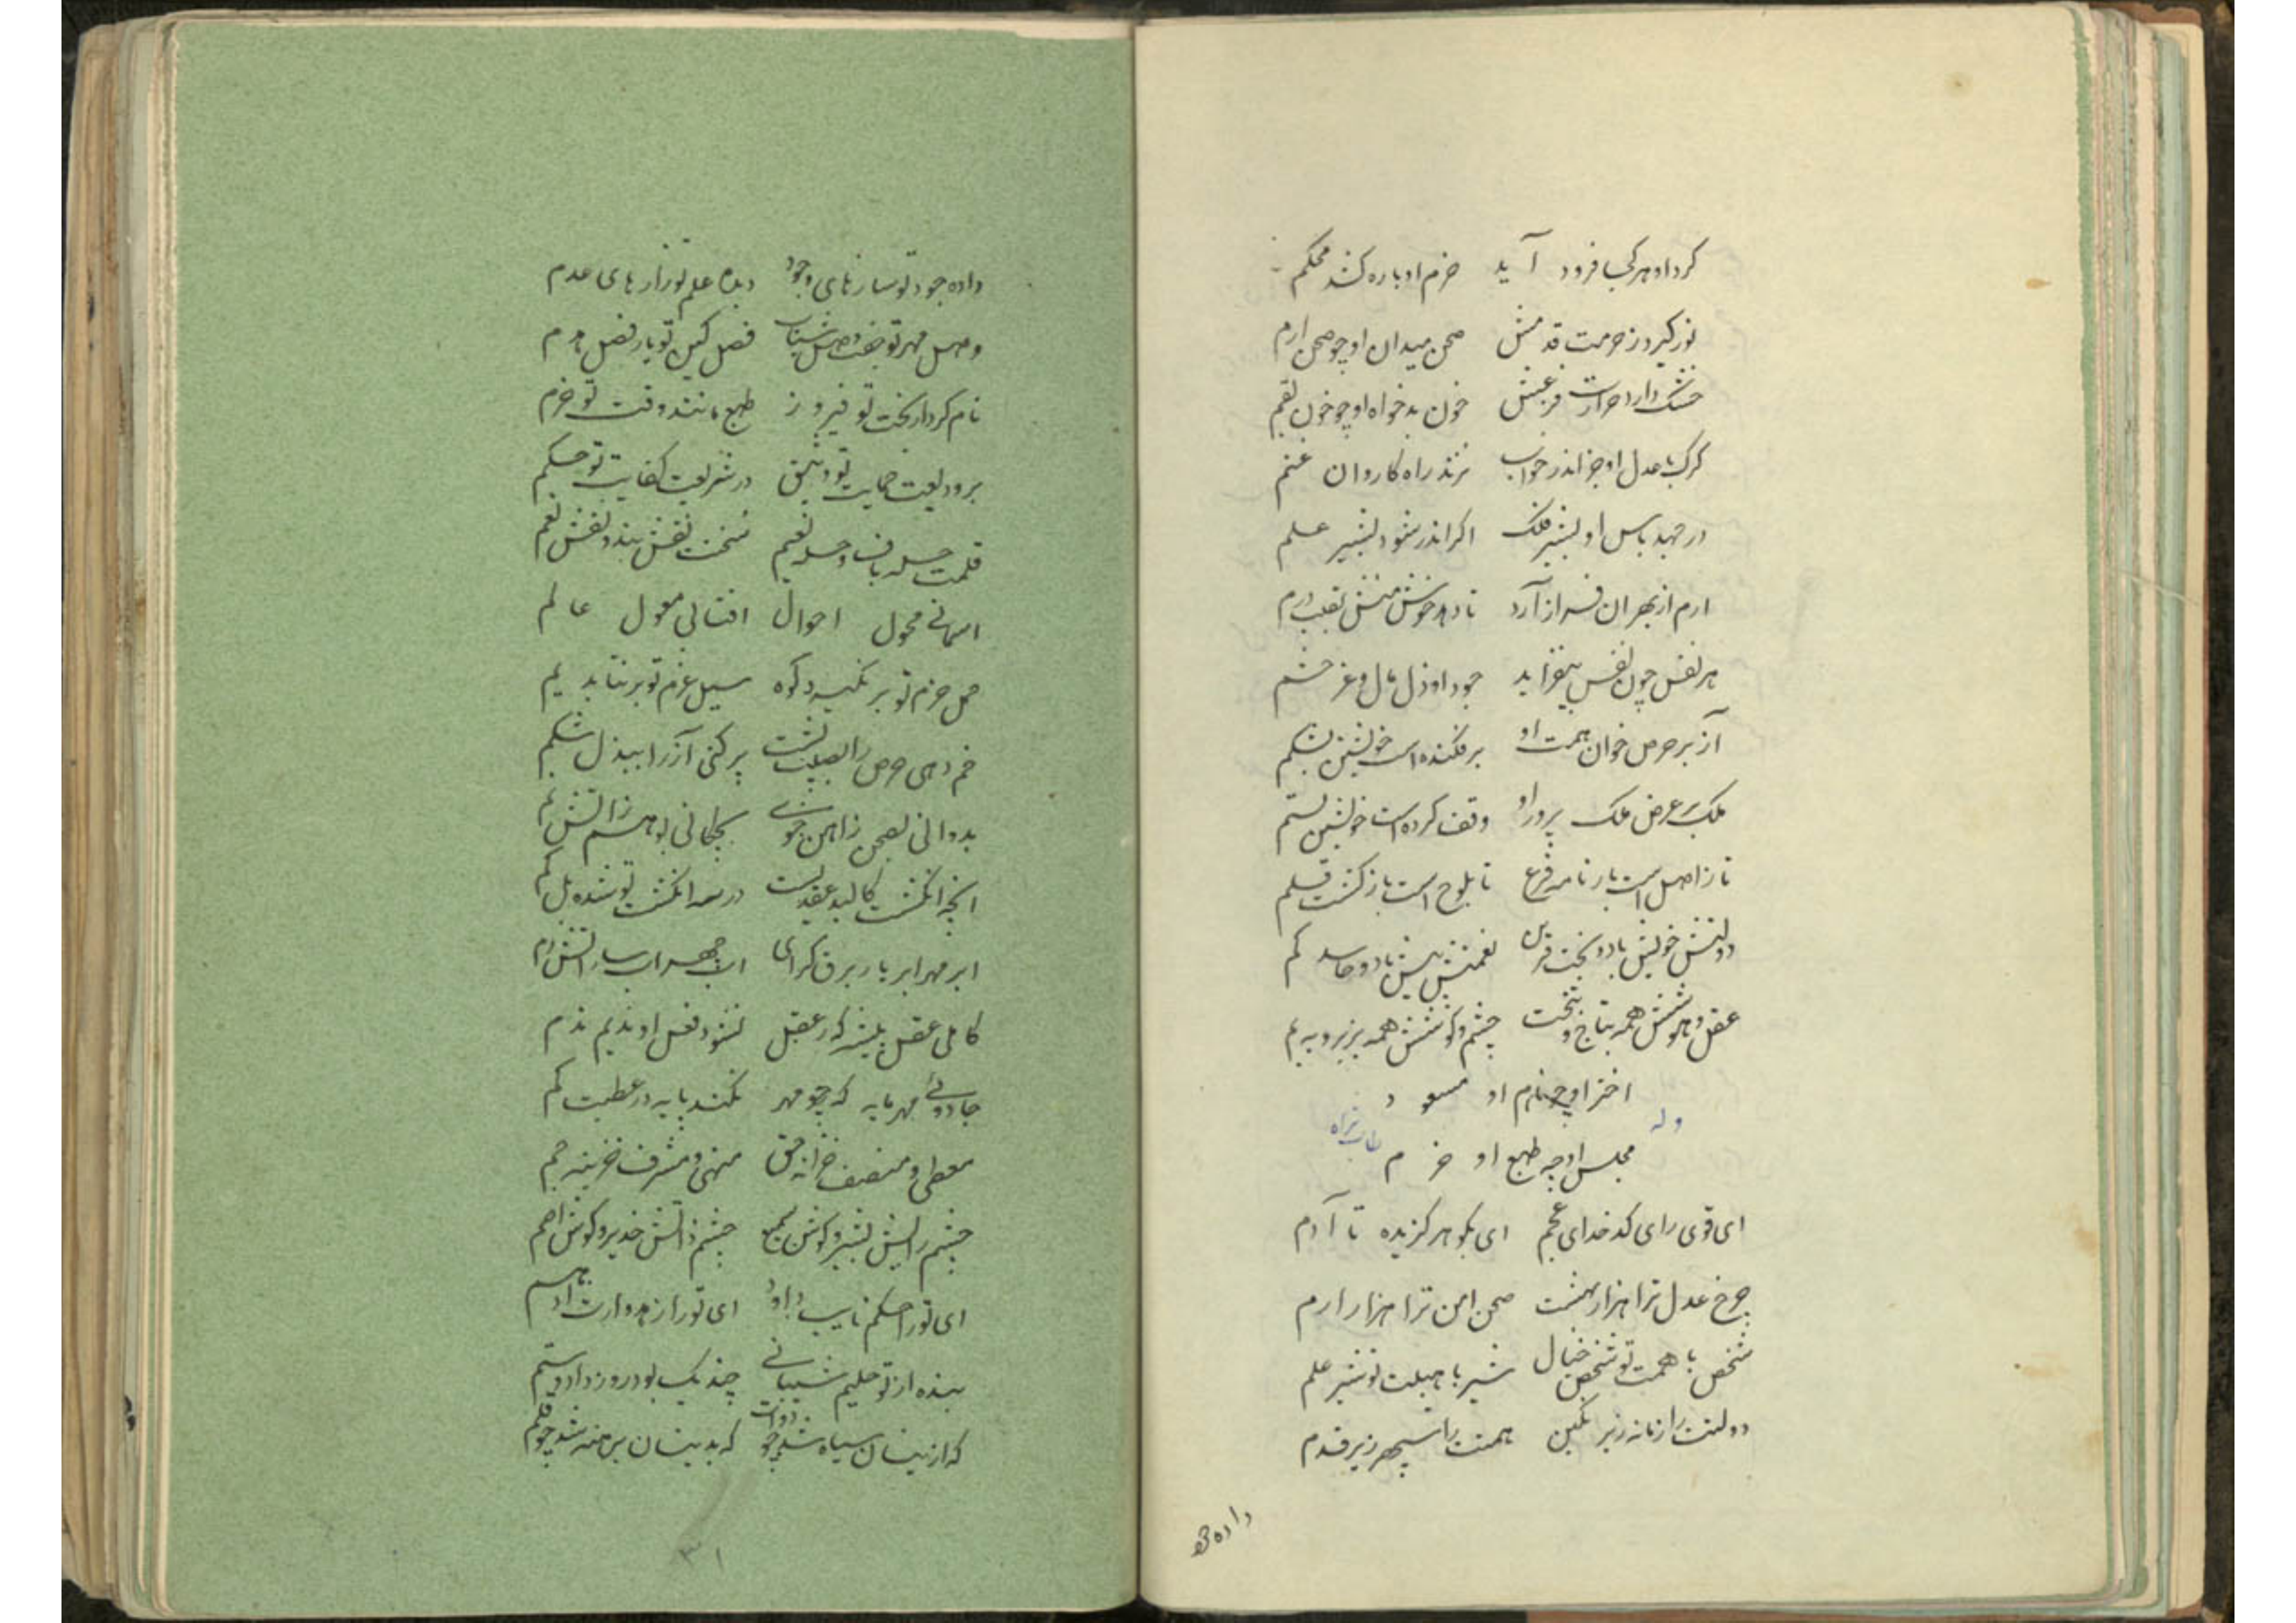 کرد او هر کجا فرود آید حزم او باره کشد محکم
نور گیرد ز حرمت قدمش صحن میدان او چو صحن ارم
خشک دارد حرارت فزعش خون بدخواه او چو خون بقم
کرک با عدل او جز اندر خواب نزند راه کاروان غنم
در جهد باس او بشیر فلک اکر اندر شود بشیر علم
ارم از بهر ان فراز آرد تا دهد خوش منش بقلب درم
هر نفس چون نفس بیفزاید جود او ذل مال و عز حشم
آز بر حرص خوان همت او بر فکنده است خویشتن بشکم
ملک بر عرض ملک پرور او وقف کرده است خویشتن بستم
تا ز اصل است بار نامه فرع تا بلوح است باز کشت قلم
دولتش خویش باد و بخت قرین نعمتش بیش باد و حاسد کم
عقل و هوشش همه بتاج و بتخت چشم و کوشش همه بزیر و به بم
اختر او چو نام او مسعود
وله
مجلس او چه طبع او خرم
ای قوی رای کدخدای عجم ای بکوهر کزیده تا آدم
چرخ عدل ترا هزار بهشت صحن امن ترا هزار ارم
شخص با همت تو شخص خیال شیر با هیبت تو شیر علم
دولتت را زمانه زیر نکین همتت را سپهر زیر قدم
داده جو
داده جود تو سازهای وجود دیده علم تو رازهای عدم
وصل مهر تو جفت وصل شباب فصل کین تو یار فصل هرم
نام کردار بخت تو فیروز طبع مانند وقت تو خرم
بر ودیعت حمایت تو وثیق در شریعت کفایت تو حکم
قلمت حله باف و حله نعیم سخنت نقش بند و نقش نعم
اسمانی محول احوال افتابی ممول عالم
حمل حزم تو بر نکیرد کوه سیل عزم تو بر نتابد یم
خم دهی حرص را بصلت پشت پر کنی آز را ببذل شکم
بدوانی بصحن ز اهن جوی بچکانی بوهم ز اتش نم
انچه انکشت کالبد عقدیست در سر انکشت تو شده بل کم
ابر مهر ابر بار برق کرای
کاملی عقل پیشه کز عقل نشود فعل او ندیم ندم
جادوئی مهر مایه که چو مهر نکند پایه در عطیت کم
معطی و منصف خزانه حق منهی و مشرف خزینه جم
چشم رایش بصیر و کوش سمیع چشم ذاتش ضریر و کوش اصم
ای تو را حکم نایب داود ای تو را زهد وارث ادهم
بنده از تو حلیم شیبانی چند یک بود روز داد و ستم
که ازینسان سیاه شد چو دوات که بدینسان برهنه شد چو قلم
۳۱